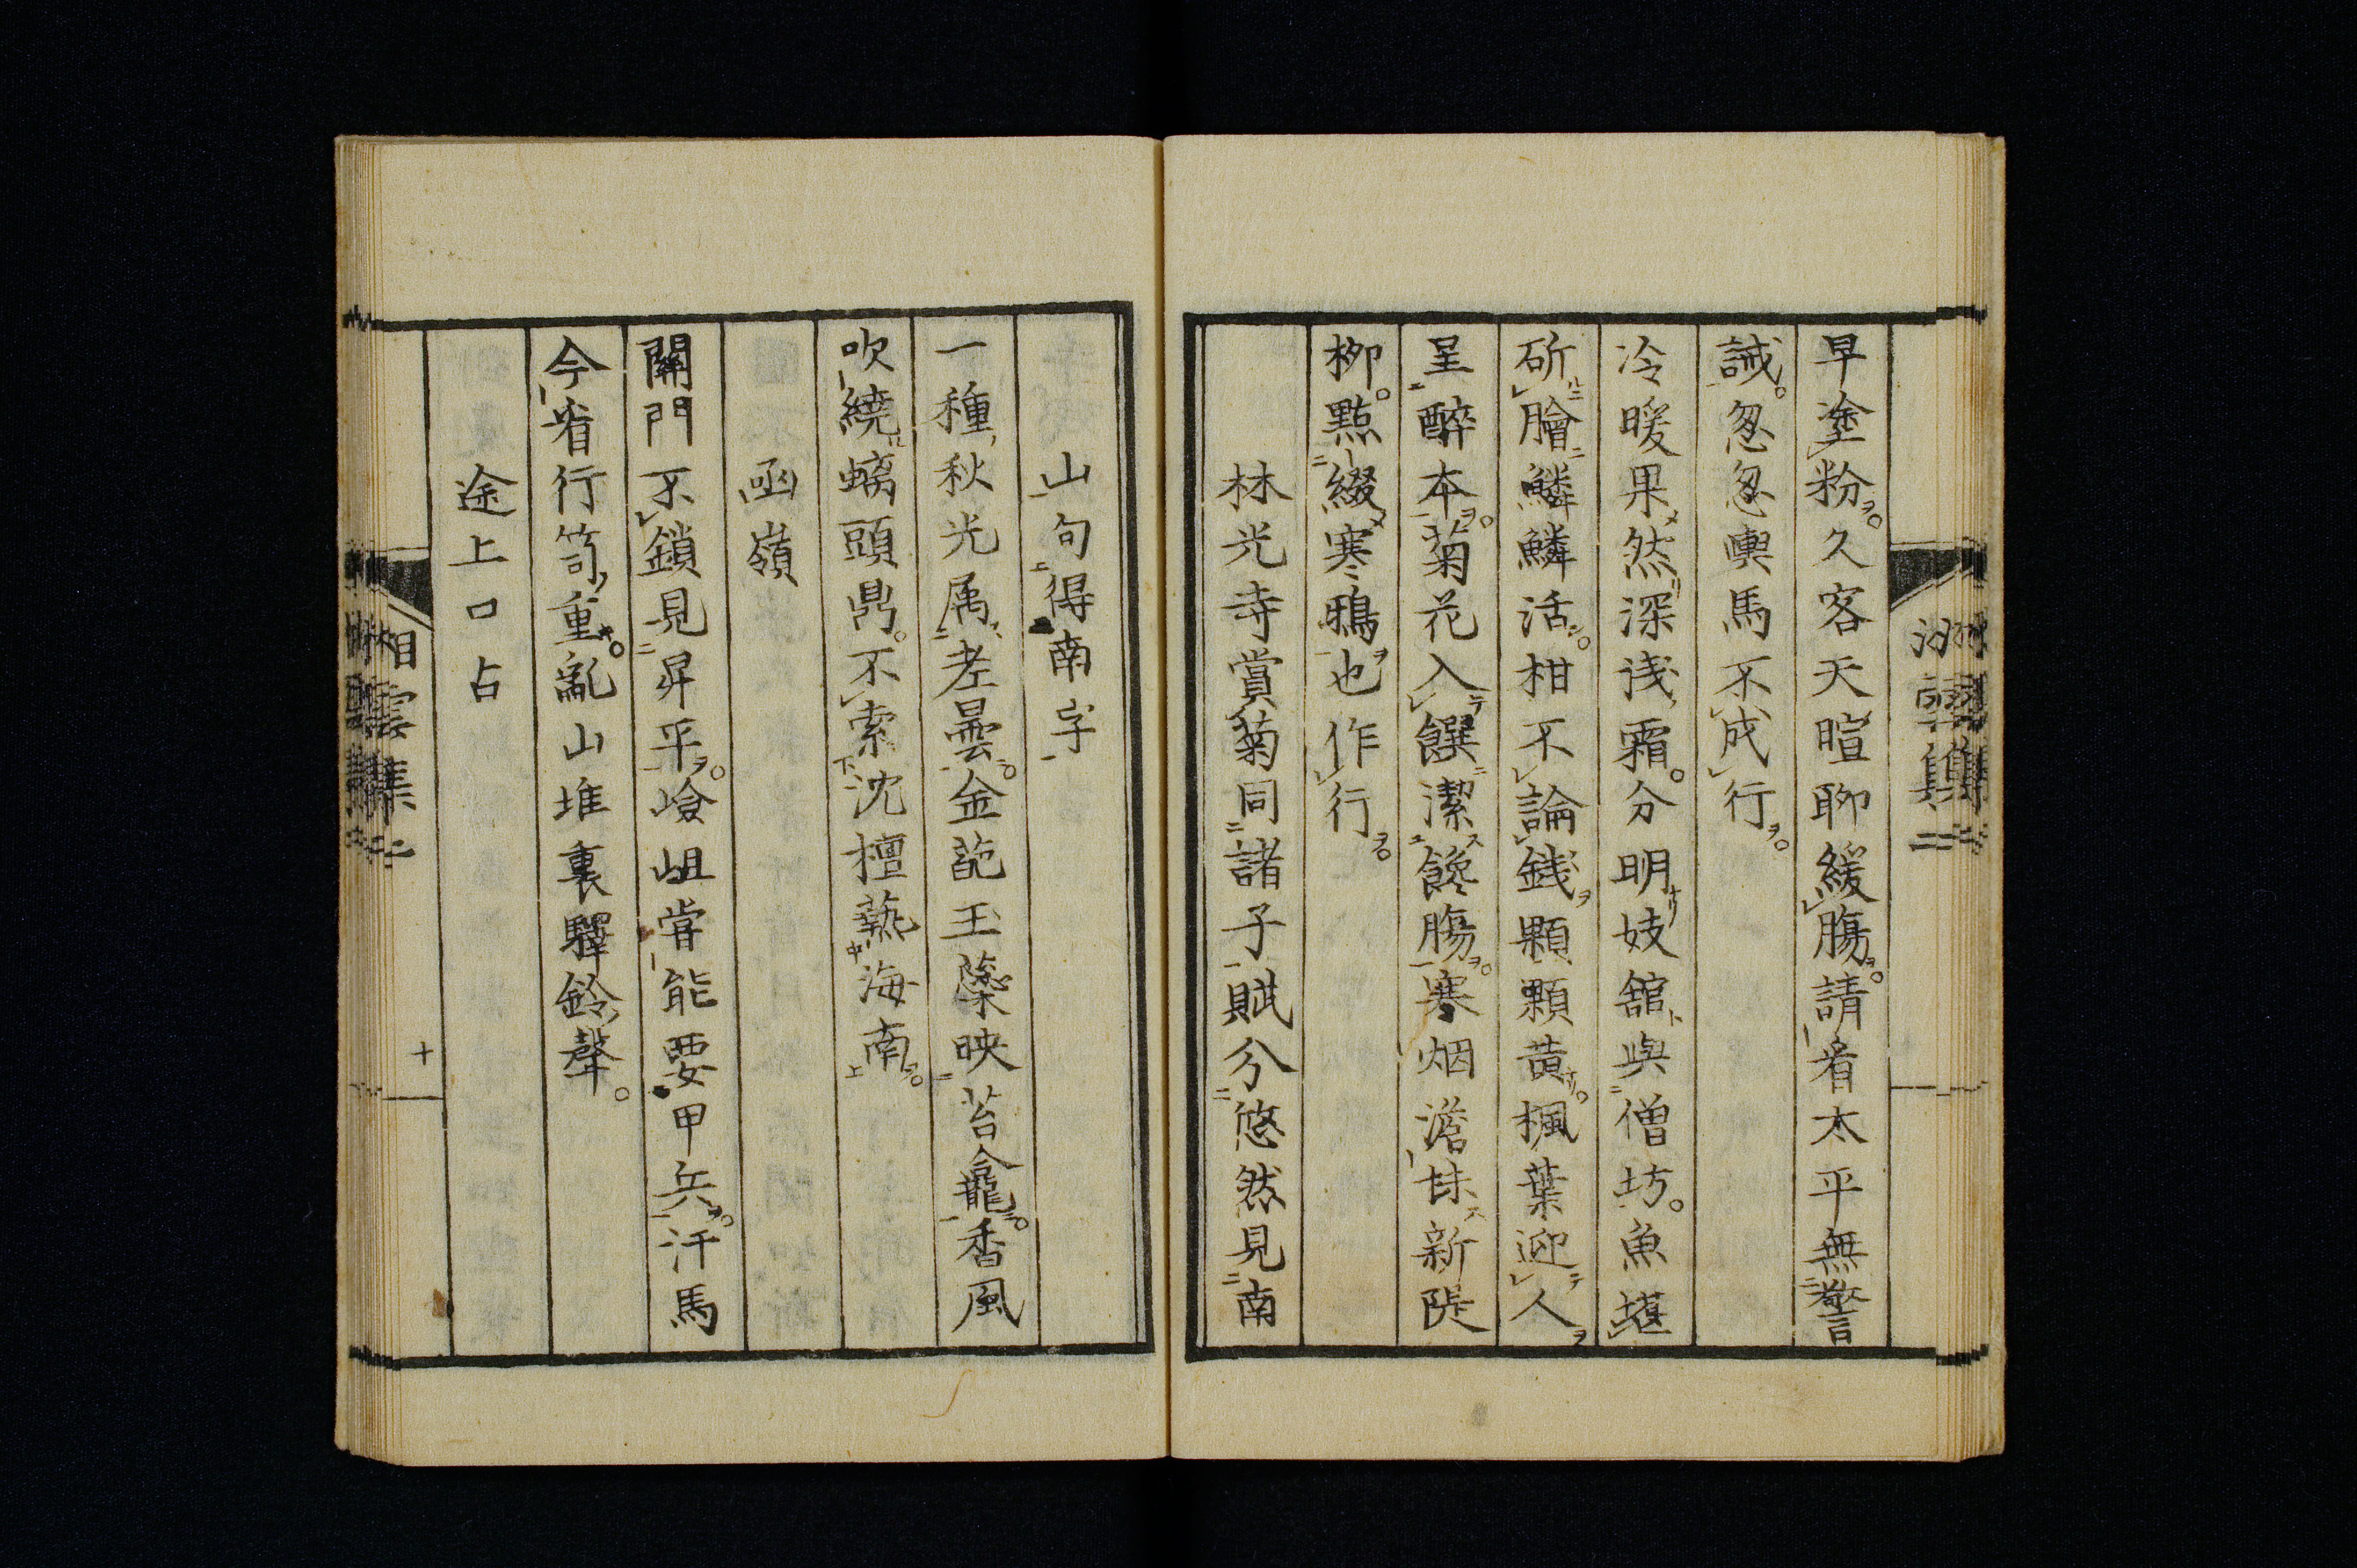 早塗粉久客天暄聊緩膓請看太平無警
誡怱怱輿馬不成行
冷暖果然深浅霜分明妓舘與僧坊魚堪
斫膾鱗鱗活柑不論銭顆顆黄楓葉迎人
呈醉本菊花入饌潔饞膓寒烟澹抹新隄
柳點綴寒鴉也作行
林光寺賞菊同諸子賦分悠然見南
山句得南字
一種秋光属老曇金葩玉蘂映苔龕香風
吹繞螭頭鼎不索沈檀爇海南
函嶺
關門不鎖見昇平嶮岨甞能要甲兵汗馬
今省行笥重亂山堆裏驛鈴聲
途上口占
十